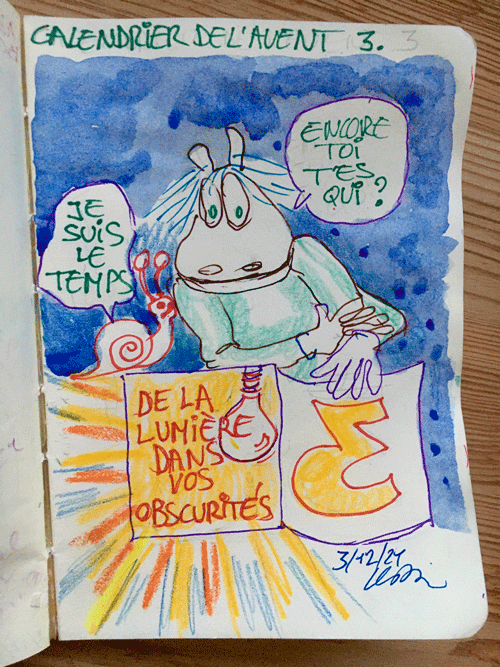 CALENDRIER DE L'AVENT 3.
ENCORE
TOI
T'ES
QUI ?
JE
SUIS
LE
TEMPS
DE LA
LUMIÈRE
DANS
VOS
OBSCURITÉS
3
3/12/21